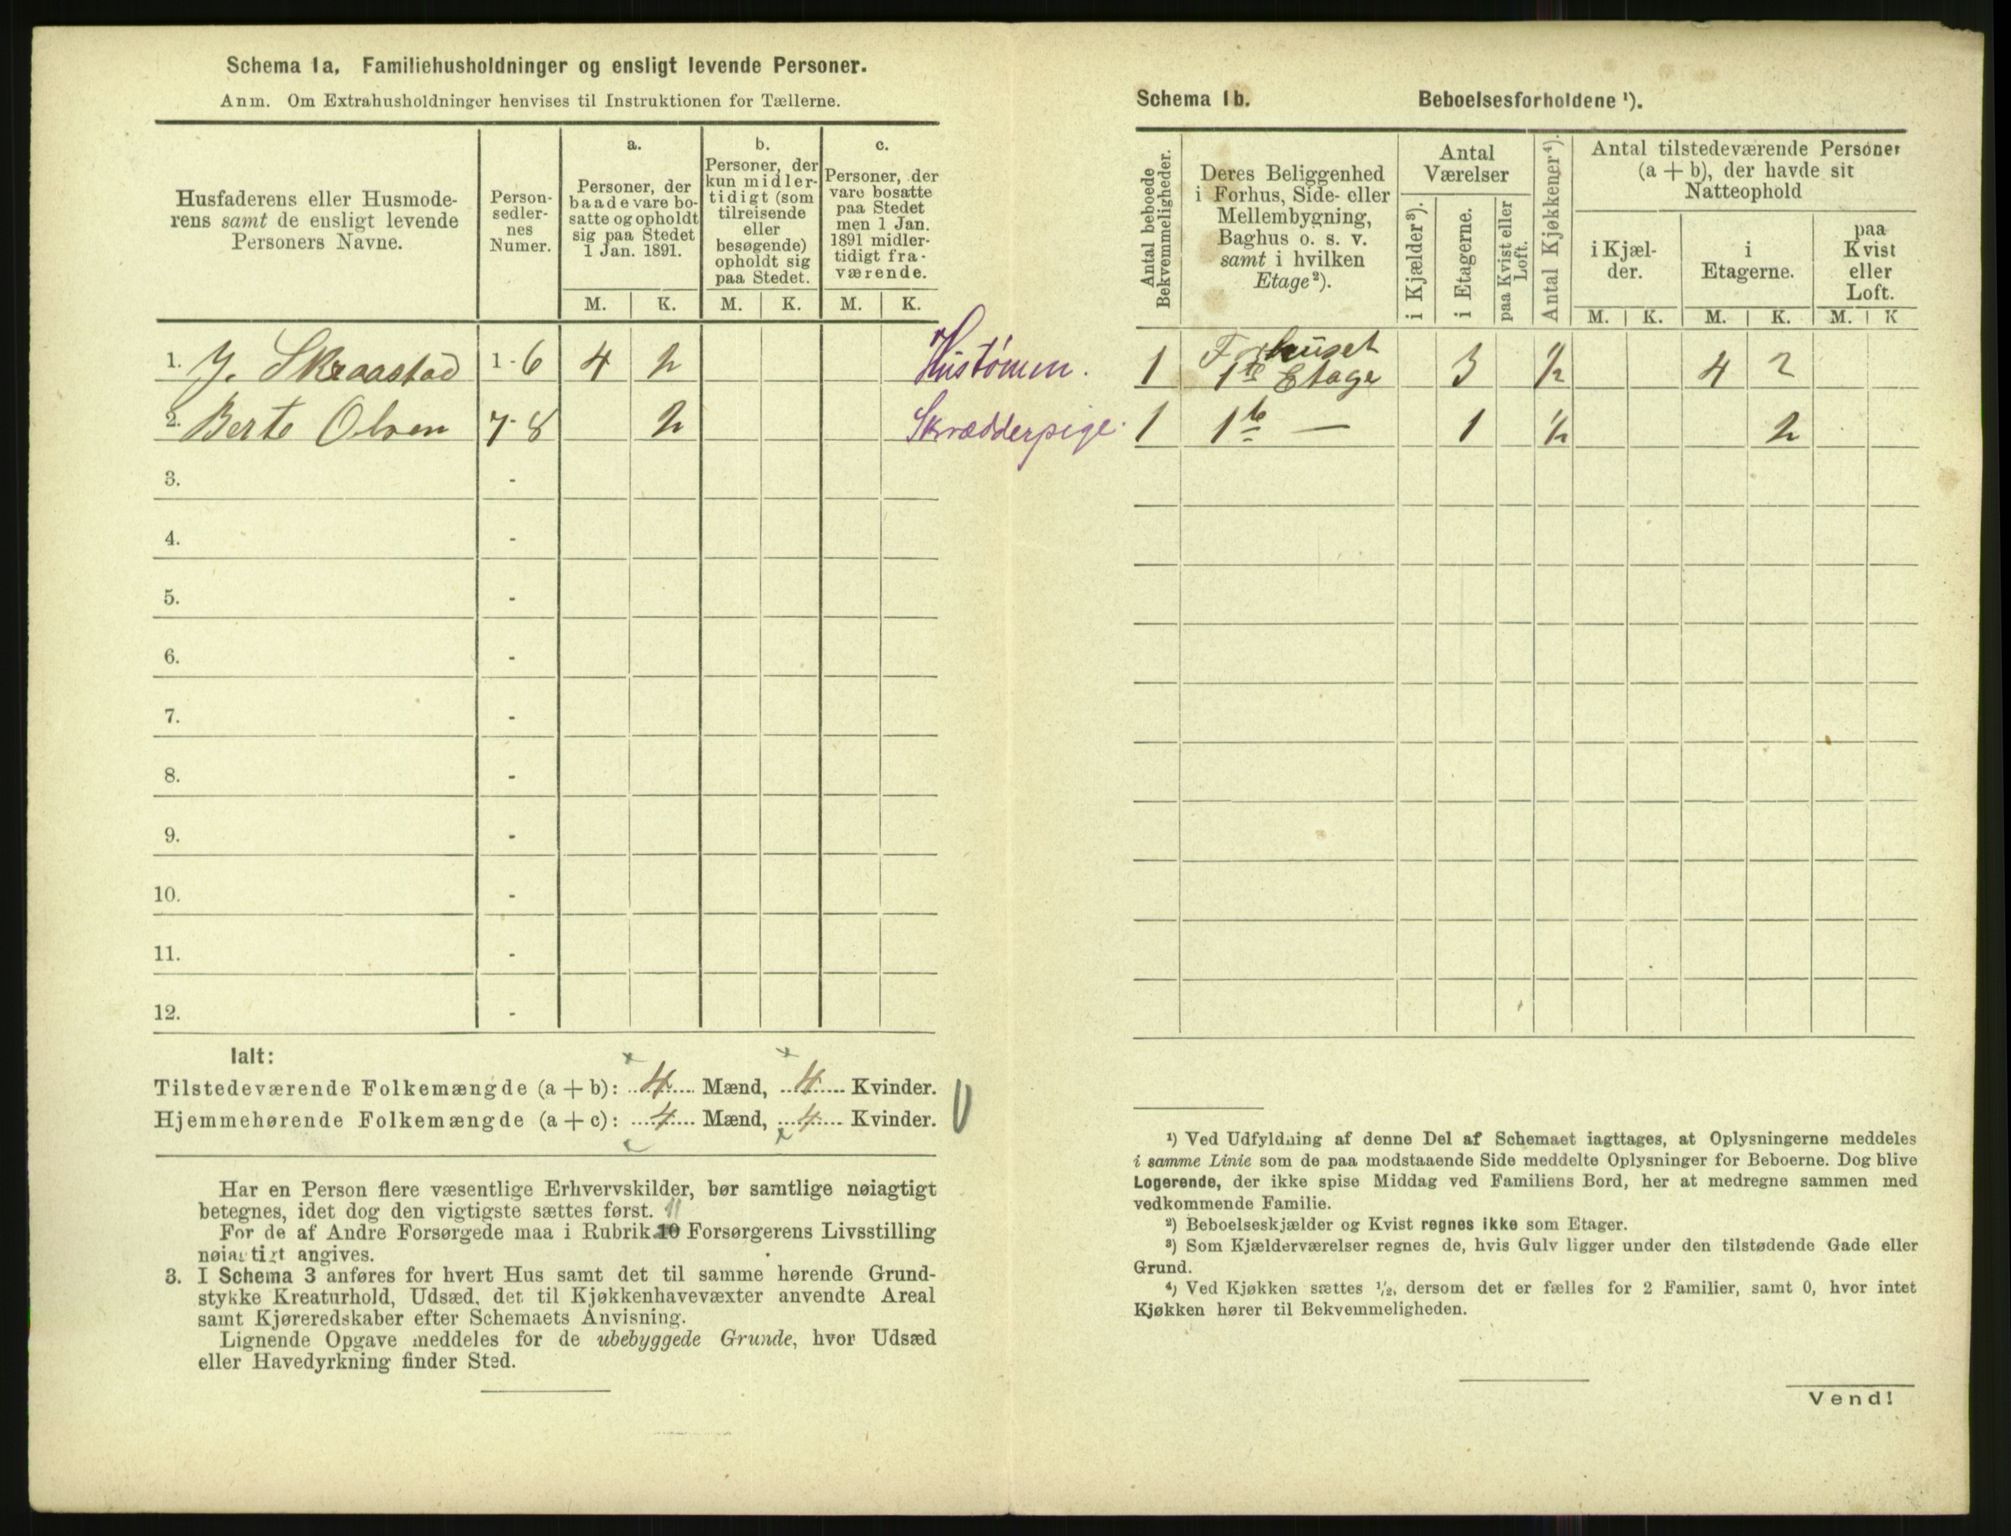 Schema 1a. Familiehusholdninger og ensligt levende Personer.
Anm. Om Extrahusholdninger henvises til Instruktionen for Tællerne.
Husfaderens eller Husmoderens samt de ensligt levende Personers Navne.
Personsedlernes Numer.
a. Personer, der baade vare bosatte og opholdt sig paa Stedet 1 Jan. 1891.
b. Personer, der kun midlertidigt (som tilreisende eller besøgende) opholdt sig paa Stedet.
c. Personer, der vare bosatte paa Stedet men 1 Jan. 1891 midlertidigt fraværende.
M. K. M. K. M. K.
1. J. Skraastad 1-6 4 2 Hustømm.
2. Berte Olsen 7-8 2 Skrædderpige.
3. -
4. -
5. -
6. -
7. -
8. -
9. -
10. -
11. -
12. -
Ialt:
Tilstedeværende Folkemængde (a + b): 4 Mænd, 4 Kvinder.
Hjemmehørende Folkemængde (a + c): 4 Mænd, 4 Kvinder.
Har en Person flere væsentlige Erhvervskilder, bør samtlige nøiagtigt
betegnes, idet dog den vigtigste sættes først. 11
For de af Andre Forsørgede maa i Rubrik 10 Forsørgerens Livsstilling
nøiagtigt angives.
3. I Schema 3 anføres for hvert Hus samt det til samme hørende Grund-
stykke Kreaturhold, Udsæd, det til Kjøkkenhavevæxter anvendte Areal
samt Kjøreredskaber efter Schemaets Anvisning.
Lignende Opgave meddeles for de ubebyggede Grunde, hvor Udsæd
eller Havedyrkning finder Sted.
Schema 1b. Beboelsesforholdene ¹).
Antal beboede Bekvemmeligheder.
Deres Beliggenhed i Forhus, Side- eller Mellembygning, Baghus o. s. v. samt i hvilken Etage²).
Antal Værelser
i Kjælder³).
i Etagerne.
paa Kvist eller Loft.
Antal Kjøkkener⁴).
Antal tilstedeværende Personer (a + b), der havde sit Natteophold
i Kjælder.
i Etagerne.
paa Kvist eller Loft.
M. K. M. K. M. K
1 Forhuset 1te Etage 3 ½ 4 2
1 1te — 1 ½ 2
¹) Ved Udfyldning af denne Del af Schemaet iagttages, at Oplysningerne meddeles
i samme Linie som de paa modstaaende Side meddelte Oplysninger for Beboerne. Dog blive
Logerende, der ikke spise Middag ved Familiens Bord, her at medregne sammen med
vedkommende Familie.
²) Beboelseskjælder og Kvist regnes ikke som Etager.
³) Som Kjælderværelser regnes de, hvis Gulv ligger under den tilstødende Gade eller
Grund.
⁴) Ved Kjøkken sættes ½, dersom det er fælles for 2 Familier, samt 0, hvor intet
Kjøkken hører til Bekvemmeligheden.
Vend!